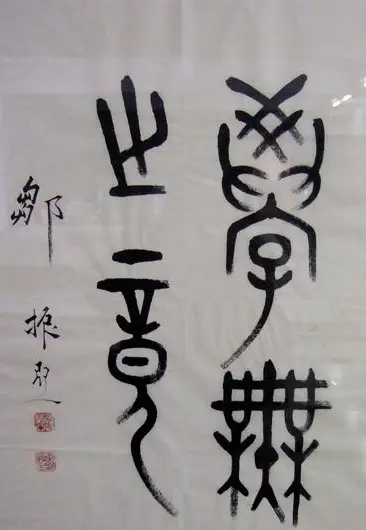 學無
止竟
鄒振亞